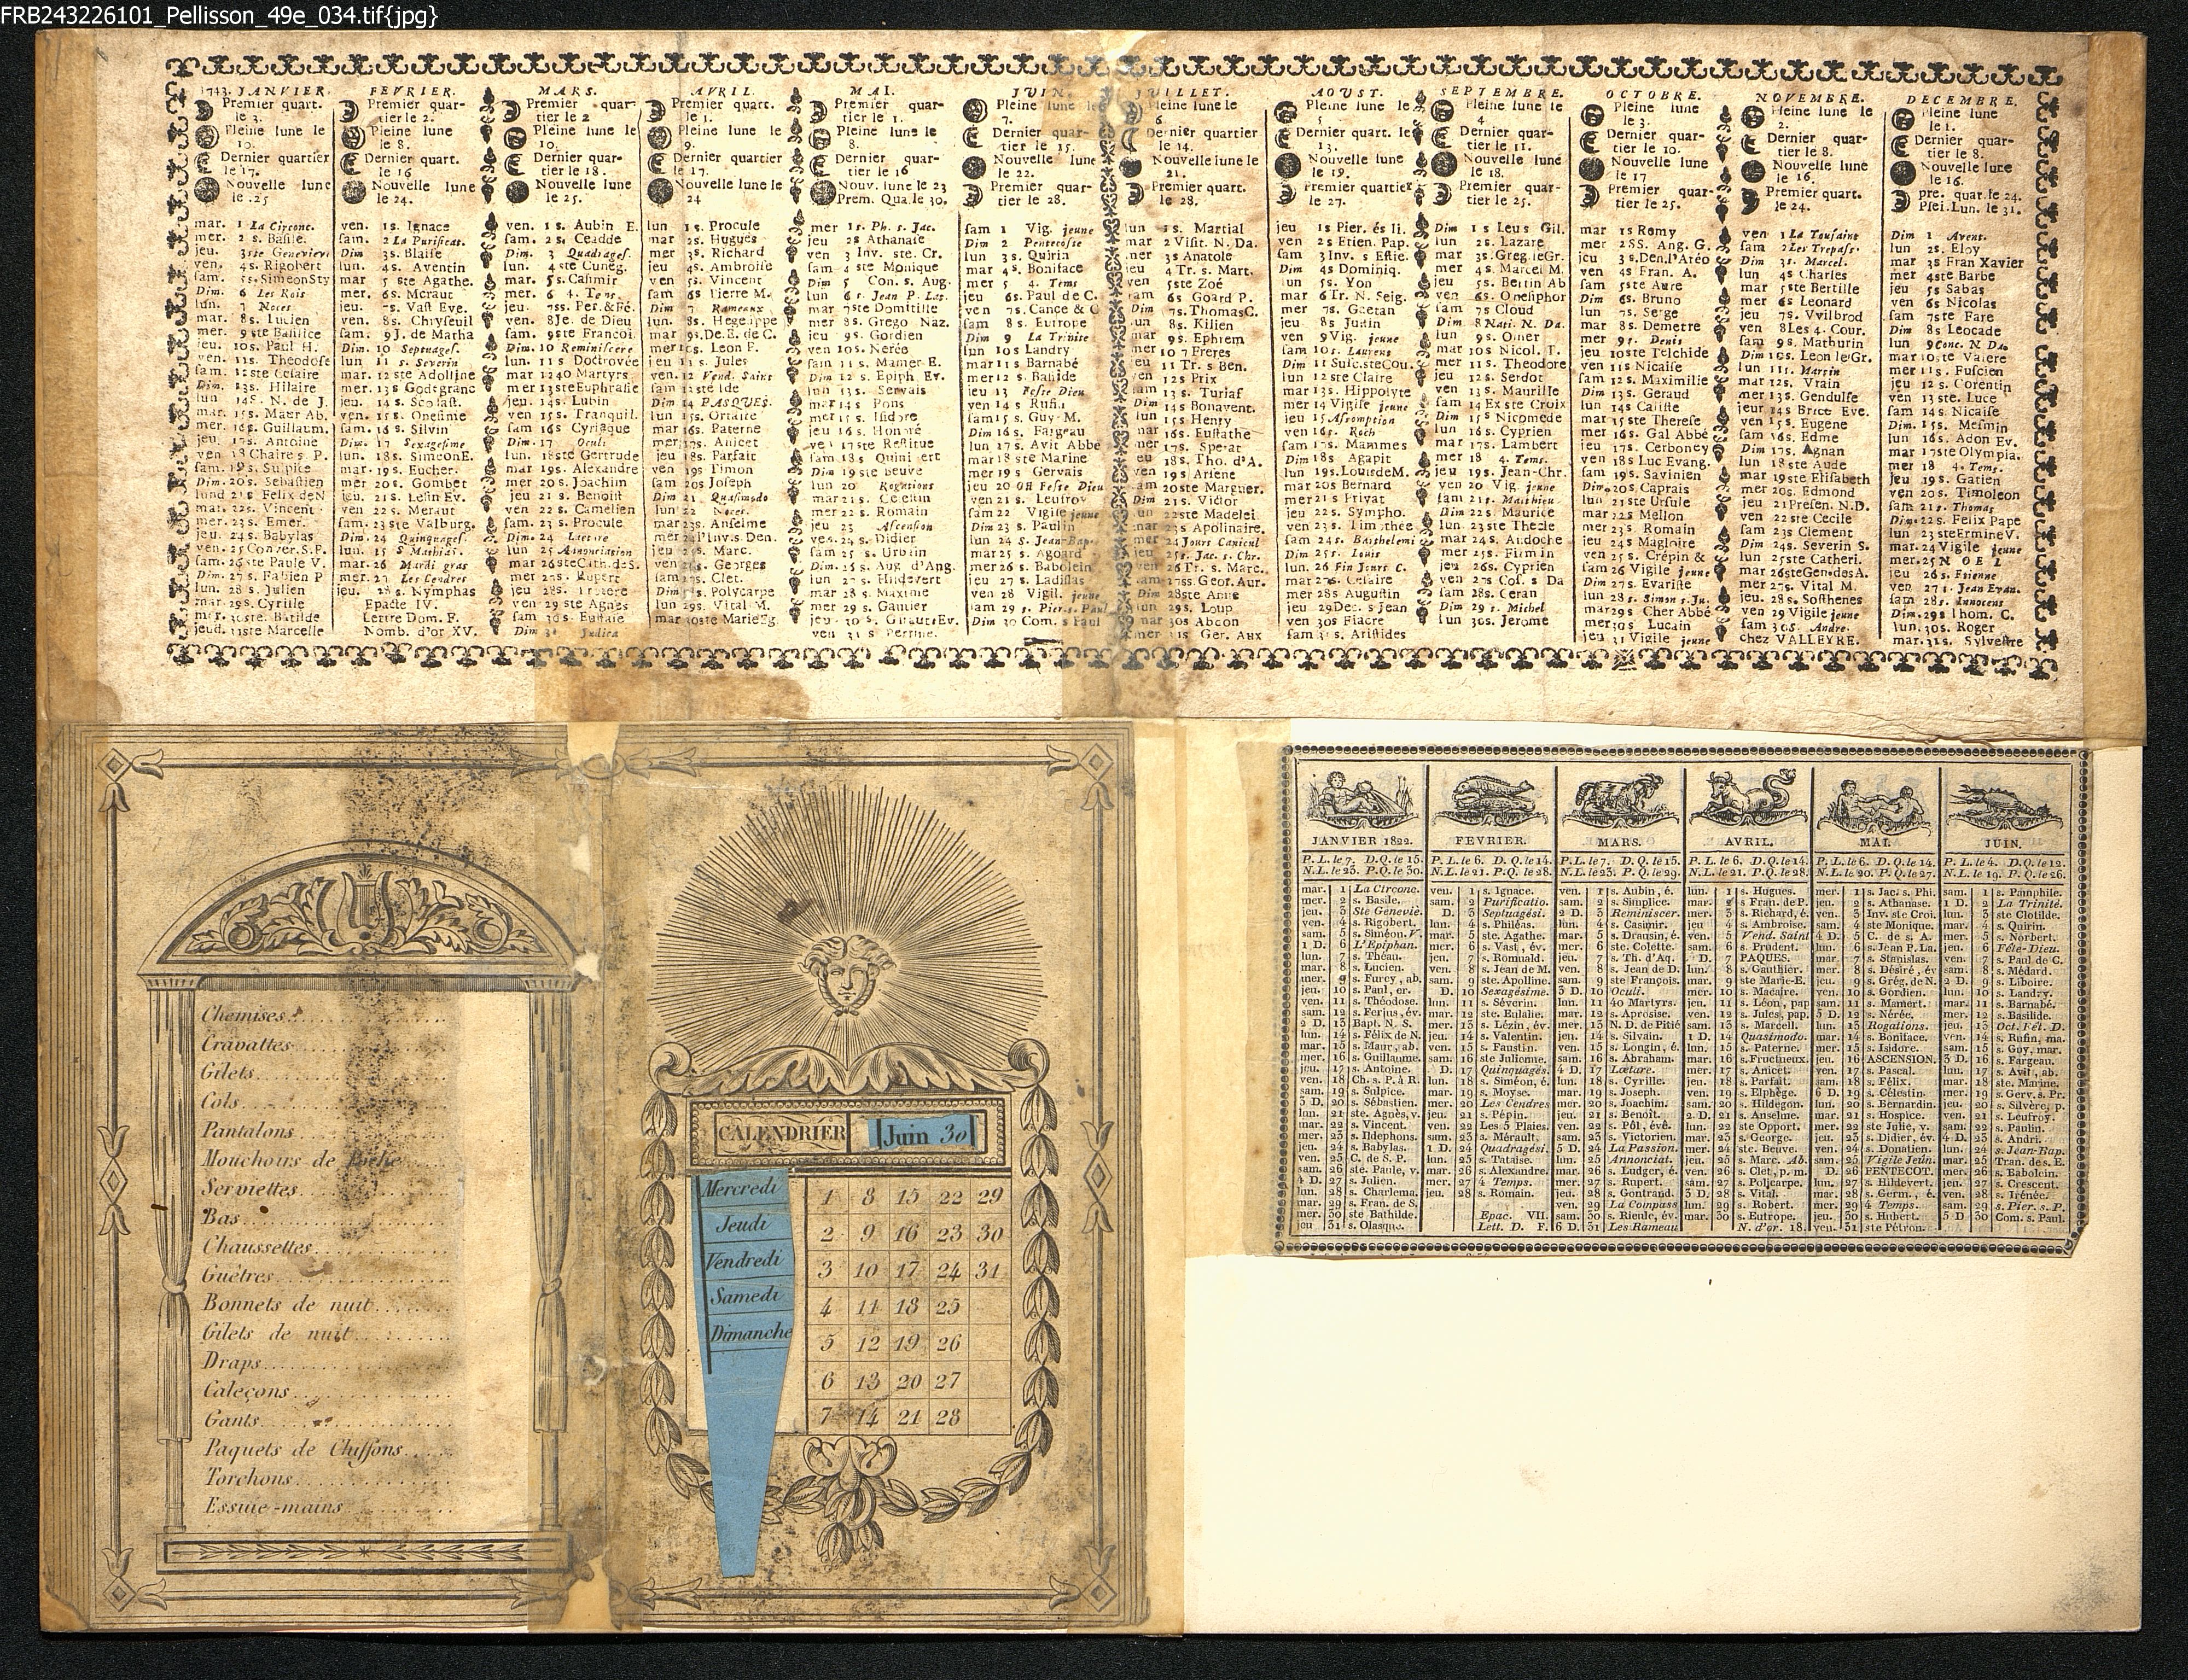 FRB243226101_Pellisson_49e_034.tif{jpg}
1743. JANVIER.
Premier quart.
le 3.
Pleine lune le
10.
Dernier quartier
le 17.
Nouvelle lune
le .25
mar. 1 La Circonc.
mer. 2 s. Basile.
jeu. 3 ste Genevieve
ven. 4s. Rigobert
sam. 5s. Simeon Sty
Dim. 6 Les Rois
lun. 7 Noces
mar. 8s. Lucien
mer. 9 ste Basilice
jeu. 10s. Paul H.
ven. 11s. Theodose
sam. 12ste Cesaire
Dim. 13s. Hilaire
lun 14S. N. de J.
mar. 15s. Maur Ab.
mer. 16s. Guillaum.
jeu. 17s. Antoine
ven 18 Chaire s P.
sam. 19s. Sulpice
Dim. 20s. Sebastien
lund 21s Felix deN
mar. 22s. Vincent
mer. 23s. Emer.
jeu. 24s. Babylas
ven. 25 Conver.S.P.
sam. 26ste Paule V.
Dim. 27s. Fabien P
lun. 28 s. Julien
mar. 29s. Cyrille
mer. 30ste. Batilde
jeud. 31ste Marcelle
FEVRIER.
Premier quar-
tier le 2.
Pleine lune
le 8.
Dernier quart.
le 16
Nouvelle lune
le 24.
ven. 1s. Ignace
sam. 2 La Purificat.
Dim. 3s. Blaise
lun. 4s. Aventin
mar 5 ste Agathe.
mer. 6s. Meraut
jeu. 7s. Vast Eve.
ven. 8s. Chryseuil
sam. 9J. de Martha
Dim. 10 Septuages.
lun 11 s. Severin
mar. 12 ste Adolfine
mer. 13s Godegranc
jeu. 14 s. Scolast.
ven. 15s. Onesime
sam. 16 s. Silvin
Dim. 17 Sexagesime
lun. 18s. SimeonE.
mar. 19s. Eucher.
mer. 20s. Gombet
jeu. 21s. Lesin Ev.
ven 22s. Meraut
sam. 23ste Valburg.
Dim. 24 Quinquages.
lun. 25 S Mathias.
mar. 26 Mardi gras
mer. 27 Les Cendres
jeu. 28 s. Nymphas
Epacte IV.
Lettre Dom. F.
Nomb. d'or XV.
MARS.
Premier quar-
tier le 2
Pleine lune le
10.
Dernier quar-
tier le 18.
Nouvelle lune
le 25.
ven. 1 s. Aubin E.
sam. 2s. Ceadde
Dim. 3 Quadrages.
lun. 4ste Cuneg.
mar. 5s. Casimir
mer. 6 4. Tens.
jeu. 7ss. Per.&Fé.
ven. 8Je. de Dieu
sam. 9ste Francoi.
Dim. 10 Reminiscere
lun. 11 s Doctrovée
mar 1240 Martyrs
mer 13steEuphrasie
jeu. 14s. Lubin
ven 15s. Tranquil.
sam 16s Cyriaque
Dim. 17 Oculi
lun. 18ste Gertrude
mar 19s. Alexandre
mer 20s. Joachim
jeu 21 s. Benoist
ven 22 s. Camelien
sam. 23 s. Procule
Dim. 24 Laetare
lun 25 Annonciation
mar 26steCath.deS.
mer 27s. Rupert
jeu 28s.
ven 29 ste Agnès
sam 30s. Eustase
Dim 31 Judica
AVRIL.
Premier quart.
le 1.
Pleine lune le
9.
Dernier quartier
le 17.
Nouvelle lune le
24
lun 1s. Procule
mar 2s. Hugues
mer 3s. Richard
jeu 4s. Ambroise
ven 5s. Vincent
sam 6s Pierre M.
Dim 7 Rameaux
lun. 8s. Hegesippe
mar 9s.De.B. de C.
mer 10s. Leon P.
jeu 11 s Jules
ven. 12 Vend. Saint
sam 13ste Ide
Dim 14 PASQUES.
lun 15s. Ortaire
mar 16s. Paterne
mer. 17s. Anicet
jeu 18s. Parfait
ven 19s Timon
sam 20s Joseph
Dim 21 Quasimodo
lun 22 Nocer.
mar 23s. Anselme
mer 24l'Invis.Den.
jeu 25s. Marc.
ven 26s. Georges
sam 27s. Clet.
Dim 28s. Polycarpe
lun 29s. Vital M.
mar 30ste MarieEg.
MAI.
Premier quar-
tier le 1.
Pleine lune le
8.
Dernier quar-
tier le 16
Nouv. lune le 23
Prem. Qua. le 30.
mer 1s. Ph. s. Jac.
jeu 2s Athanase
ven 3 Inv. ste. Cr.
sam 4 ste Monique
Dim 5 Con. s. Aug.
lun 6 s. Jean P. Lat.
mar 7ste Domitille
mer 8s. Grego Naz.
jeu 9s. Gordien
ven 10s. Nerée
sam 11s. Mamer E.
Dim 12 s. Epiph. Ev.
lun 13s. Servais
mar 14s Pons
mer 15s. Isidore
jeu 16s. Honoré
ven 17ste Restitue
sam 18s Quini ert
Dim 19 ste beuve
lun 20 Rogations
mar 21 s. Celestin
mer 22 s. Romain
jeu 23 Ascension
ven. 24 s. Didier
sam 25 s. Urbain
Dim. 26 s. Aug d'Ang.
lun 27s. Hildevert
mar 28 s. Maxime
mer 29 s. Gautier
jeu. 30 s. GirautEv.
ven 31 s Perrine.
JUIN.
Pleine lune le
7.
Dernier quar-
tier le 15.
Nouvelle lune
le 22.
Premier quar-
tier le 28.
sam 1 Vig. jeune
Dim 2 Pentecoste
lun 3s. Quirin
mar 4s. Boniface
mer 5 4. Tems
jeu 6s. Paul de C.
ven 7s. Cance & C
sam 8 s. Europe
Dim 9 La Trinite
lun 10s Landry
mar 11s Barnabé
mer 12 s. Basilide
jeu 13 Feste Dieu
ven 14 s Rufin
sam 15 s. Guy M.
Dim 16s. Fargeau
lun 17s. Avit Abbé
mar 18 ste Marine
mer 19 s Gervais
jeu 20 Oct Feste Dieu
ven 21 s. Leufroy
sam 22 Vigile jeune
Dim 23 s. Paulin
lun 24 S. Jean-Bap.
mar 25 s. Agoard
mer 26 s. Babolein
jeu 27 s. Ladislas
ven 28 Vigil. jeune
sam 29 s. Pier.s. Paul
Dim 30 Com. s Paul
JUILLET.
Pleine lune le
6
Dernier quartier
le 14.
Nouvelle lune le
21.
Premier quart.
le 28.
lun 1s. Martial
mar 2 Visit. N. Da.
mer 3s Anatole
jeu 4 Tr. s. Mart.
ven 5ste Zoé
sam 6s Goard P.
Dim 7s. ThomasC.
lun 8s. Kilien
mar 9s. Ephrem
mer 10 7 Freres
jeu 11 Tr. s Ben.
ven 12s Prix
sam 13s. Turiaf
Dim 14s Bonavent.
lun 15s Henry
mar 16s. Eustathe
mer 17s. Sperat
jeu 18s. Tho. d'A.
ven 19s Arlene
sam 20ste Marguer.
Dim 21s. Victor
lun 22ste Madelei.
mar 23s Apolinaire.
mer 24 Jours Canicul
jeu 25s. Jac. s. Chr.
ven 26 Tr. s. Marc.
sam 27ss. Geor. Aur.
Dim 28ste Anne
lun 29s. Loup
mar 30s Abdon
mer 31s Ger. Aux
AOUST.
Pleine lune le
5
Dernier quart. le
13.
Nouvelle lune
le 19.
Premier quartier
le 27.
jeu 1s Pier. és li.
ven 2s Etien. Pap.
sam 3 Inv. s Estie.
Dim 4s Dominiq.
lun 5s. Yon
mar 6 Tr. N. Seig.
mer 7s. Gaetan
jeu 8s Justin
ven 9 Vig. jeune
sam 10s. Laurens
Dim 11 Susc.steCou.
lun 12 ste Claire
mar 13s. Hippolyte
mer 14 Vigile jeune
jeu 15 Assomption
ven 16s. Roch
sam 17s. Mammes
Dim 18s Agapit
lun 19s. LouisdeM.
mar 20s Bernard
mer 21 s Privat
jeu 22s. Sympho.
ven 23 s. Timothée
sam 24s. Barthelemi
Dim 25s. Louis
lun. 26 Fin Jours C.
mar 27s. Cesaire
mer 28s Augustin
jeu 29Dec. s Jean
ven 30s Fiacre
sam 31s. Aristides
SEPTEMBRE.
Pleine lune le
4
Dernier quar-
tier le 11.
Nouvelle lune
le 18.
Premier quar-
tier le 25.
Dim 1 s Leu s Gil.
lun 2s. Lazare
mar 3s.Greg. leGr.
mer 4s. Marcel M.
jeu 5s. Bertin Ab
ven 6s. Onesiphor
sam 7s Cloud
Dim 8 Nati. N. Da.
lun 9s. Omer
mar 10s Nicol. T.
mer 11s. Theodore
jeu 12s. Serdot
ven 13s. Maurille
sam 14 Ex ste Croix
Dim 15s Nicomede
lun 16s. Cyprien
mar 17s. Lambert
mer 18 4. Tems.
jeu 19s. Jean-Chr.
ven 20 Vig. jeune
sam 21s. Matthieu
Dim 22s. Maurice
lun. 23 ste Thecle
mar 24s. Andoche
mer 25s. Firmin
jeu 26s. Cyprien
ven 27s Cos. s Da
sam 28s. Ceran
Dim 29 s. Michel
lun 30s. Jerome
OCTOBRE.
Pleine lune
le 3.
Dernier quar-
tier le 10.
Nouvelle lune
le 17
Premier quar-
tier le 25.
mar 1s Romy
mer 2SS. Ang. G.
jeu 3 s.Den.l'Aréo
ven 4s Fran. A.
sam 5ste Aure
Dim 6s. Bruno
lun 7s. Serge
mar 8s. Demetre
mer 9s. Denis
jeu 10ste Telchide
ven 11s Nicaise
sam 12s. Maximilie
Dim 13s. Geraud
lun 14s Caliste
mar 15ste Therese
mer 16s. Gal Abbé
jeu 17s. Cerboney
ven 18s Luc Evang.
sam 19s. Savinien
Dim. 20s Caprais
lun 21ste Ursule
mar 22s Mellon
mer 23s. Romain
jeu 24s Magloire
ven 25 s. Crépin &
sam 26 Vigile jeune
Dim 27s. Evariste
lun 28 s. Simon s. Ju.
mar 29s Cher Abbé
mer 30s Lucain
jeu 31 Vigile jeune
NOVEMBRE.
Pleine lune le
2.
Dernier quar-
tier le 8.
Nouvelle lune
le 16.
Premier quart.
le 24.
ven 1 La Tousaint
sam 2 Les Trepass.
Dim 3s. Marcel.
lun 4s Charles
mar 5ste Bertille
mer 6s Leonard
jeu 7s. Vvilbrod
ven 8Les 4. Cour.
sam 9s. Mathurin
Dim 10s. Leon leGr.
lun 11s. Martin
mar 12s. Vrain
mer 13s. Gendulfe
jeu 14s Brice Eve.
ven 15s. Eugene
sam 16s. Edme
Dim 17s. Agnan
lun 18 ste Aude
mar 19ste Elisabeth
mer 20s. Edmond
jeu 21Presen. N.D.
ven 22 ste Cecile
sam 23s Clement
Dim 24s. Severin S.
lun 25ste Catheri.
mar 26steGen.desA.
mer 27s. Vital M.
jeu 28s. Sosthenes
ven 29 Vigile jeune
sam 30s. Andre.
chez VALLEYRE.
DECEMBRE.
Pleine lune
le 1.
Dernier quar-
tier le 8.
Nouvelle lune
le 16.
pre. quar. le 24.
Plei. Lun. le 31.
Dim 1 Avent.
lun 2s. Eloy
mar 3s Fran Xavier
mer 4ste Barbe
jeu 5s Sabas
ven 6s Nicolas
sam 7ste Fare
Dim 8s Leocade
lun 9 Conc. N Da
mar 10 ste Valere
mer 11s. Fuscien
jeu 12s. Corentin
ven 13 ste. Luce
sam 14s. Nicaise
Dim. 15s. Mesmin
lun 16s. Adon Ev.
mar 17ste Olympia.
mer 18 4. Tems.
jeu 19s. Gatien
ven 20s. Timoleon
sam 21s. Thomas
Dim. 22s. Felix Pape
lun 23steErmineV.
mar. 24 Vigile jeune
mer. 25 NOEL
jeu 26s. Etienne
ven 27s. Jean Evan.
sam 28s. Innocens
Dim. 29s Thom. C.
lun. 30s. Roger
mar. 31s. Sylvestre
Chemises
Cravattes
Gilets
Cols
Pantalons
Mouchoirs de Poche
Serviettes
Bas
Chaussettes
Guêtres
Bonnets de nuit
Gilets de nuit
Draps
Caleçons
Gants
Paquets de Chiffons
Torchons
Essuie-mains
CALENDRIER Juin 30
Mercredi 1 8 15 22 29
Jeudi 2 9 16 23 30
Vendredi 3 10 17 24 31
Samedi 4 11 18 25
Dimanche 5 12 19 26
6 13 20 27
7 14 21 28
JANVIER 1822.
P. L. le 7. D. Q. le 15.
N. L. le 23. P. Q. le 30.
mar. 1 La Circonc.
mer. 2 s. Basile.
jeu. 3 Ste Genevie.
ven. 4 s. Rigobert.
sam. 5 s. Siméon. V.
1 D. 6 L'Epiphan.
lun. 7 s. Théau.
mar. 8 s. Lucien.
mer. 9 s. Furcy, ab.
jeu. 10 s. Paul, er.
ven. 11 s. Théodose.
sam. 12 s. Ferjus, év.
2 D. 13 Bapt. N. S.
lun. 14 s. Félix de N.
mar. 15 s. Maur, ab.
mer. 16 s. Guillaume.
jeu. 17 s. Antoine.
ven. 18 Ch. s. P. à R.
sam. 19 s. Sulpice.
3 D. 20 s. Sébastien.
lun. 21 ste. Agnès, v.
mar. 22 s. Vincent.
mer. 23 s. Ildephons.
jeu. 24 s. Babylas.
ven. 25 C. de S. P.
sam. 26 ste. Paule, v.
4 D. 27 s. Julien.
lun. 28 s. Charlema.
mar. 29 s. Fran. de S.
mer. 30 ste Bathilde.
jeu 31 s. Olasque.
FEVRIER.
P. L. le 6. D. Q. le 14.
N. L. le 21. P. Q. le 28.
ven. 1 s. Ignace.
sam. 2 Purificatio.
D. 3 Septuagési.
lun. 4 s. Philéas.
mar. 5 ste. Agathe.
mer. 6 s. Vast, év.
jeu. 7 s. Romuald.
ven. 8 s. Jean de M.
sam. 9 ste. Apolline.
D. 10 Sexagésime.
lun. 11 s. Séverin.
mar. 12 ste. Eulalie.
mer. 13 s. Lézin, év.
jeu. 14 s. Valentin.
ven. 15 s. Faustin.
sam. 16 ste Julienne.
D. 17 Quinquagés.
lun. 18 s. Siméon, é.
mar. 19 s. Moyse.
mer. 20 Les Cendres
jeu. 21 s. Pépin.
ven. 22 Les 5 Plaies.
sam. 23 s. Mérault.
1 D. 24 Quadragési.
lun. 25 s. Tataise.
mar. 26 s. Alexandre.
mer. 27 4 Temps.
jeu. 28 s. Romain.
Epac. VII.
Lett. D. F.
MARS.
P. L. le 7. D. Q. le 15.
N. L. le 23. P. Q. le 29.
ven. 1 s. Aubin, é.
sam. 2 s. Simplice.
2 D. 3 Reminiscer.
lun. 4 s. Casimir.
mar. 5 s. Drausin, é.
mer. 6 ste. Colette.
jeu. 7 s. Th. d'Aq.
ven. 8 s. Jean de D.
sam. 9 ste François.
3 D. 10 Oculi.
lun. 11 40 Martyrs.
mar. 12 s. Aprosise.
mer. 13 N. D. de Pitié
jeu. 14 s. Silvain.
ven. 15 s. Longin, é.
sam. 16 s. Abraham.
4 D. 17 Lœtare.
lun. 18 s. Cyrille.
mar. 19 s. Joseph.
mer. 20 s. Joachim.
jeu. 21 s. Benoît.
ven. 22 s. Pôl, évê.
sam. 23 s. Victorien.
5 D. 24 La Passion.
lun. 25 Annonciat.
mar. 26 s. Ludger, é.
mer. 27 s. Rupert.
jeu. 28 s. Gontrand.
ven. 29 La Compass
sam. 30 s. Rieule, év.
6 D. 31 Les Rameau
AVRIL.
P. L. le 6. D. Q. le 14.
N. L. le 21. P. Q. le 28.
lun. 1 s. Hugues.
mar. 2 s. Fran. de P.
mer. 3 s. Richard, é.
jeu 4 s. Ambroise.
ven. 5 Vend. Saint
sam. 6 s. Prudent.
D. 7 PAQUES.
lun. 8 s. Gauthier.
mar. 9 ste Marie-E.
mer. 10 s. Macaire.
jeu. 11 s. Léon, pap
ven. 12 s. Jules, pap.
sam. 13 s. Marcell.
1 D. 14 Quasimodo.
lun. 15 s. Paterne.
mar. 16 s. Fructueux.
mer. 17 s. Anicet.
jeu. 18 s. Parfait.
ven. 19 s. Elphège.
sam. 20 s. Hildegon.
2 D. 21 s. Anselme.
lun. 22 ste Opport.
mar. 23 s. George.
mer. 24 ste. Beuve.
jeu. 25 s. Marc. Ab.
ven. 26 s. Clet, p. m.
sam. 27 s. Policarpe.
3 D. 28 s. Vital.
lun. 29 s. Robert.
mar. 30 s. Eutrope.
N. d'or. 18.
MAI.
P. L. le 6. D. Q. le 14.
N. L. le 20. P. Q. le 27.
mer. 1 s. Jac. s. Phi.
jeu. 2 s. Athanase.
ven. 3 Inv. ste Croi.
sam. 4 ste Monique.
4 D. 5 C. de s. A.
lun. 6 s. Jean P. La.
mar. 7 s. Stanislas.
mer. 8 s. Désiré, év
jeu. 9 s. Grég. de N.
ven. 10 s. Gordien.
sam. 11 s. Mamert.
5 D. 12 s. Nérée.
lun. 13 Rogations.
mar. 14 s. Boniface.
mer. 15 s. Isidore.
jeu. 16 ASCENSION.
ven. 17 s. Pascal.
sam. 18 s. Félix.
6 D. 19 s. Célestin.
lun. 20 s. Bernardin.
mar. 21 s. Hospice.
mer. 22 ste Julie, v.
jeu. 23 s. Didier, év.
ven. 24 s. Donatien.
sam. 25 Vigile Jeûn.
D. 26 PENTECOT.
lun. 27 s. Hildevert.
mar. 28 s. Germ., é.
mer. 29 4 Temps.
jeu. 30 s. Hubert.
ven. 31 ste Pétron.
JUIN.
P. L. le 4. D. Q. le 12.
N. L. le 19. P. Q. le 26.
sam. 1 s. Pamphile.
1 D. 2 La Trinité.
lun. 3 ste Clotilde.
mar. 4 s. Quirin.
mer. 5 s. Norbert.
jeu. 6 Fête-Dieu.
ven. 7 s. Paul de C.
sam. 8 s. Médard.
2 D. 9 s. Liboire.
lun. 10 s. Landry.
mar. 11 s. Barnabé.
mer. 12 s. Basilide.
jeu. 13 Oct. Fêt. D.
ven. 14 s. Rufin, ma.
sam. 15 s. Guy, mar.
3 D. 16 s. Fargeau.
lun. 17 s. Avit, ab.
mar. 18 ste. Marine.
mer. 19 s. Gerv. s. Pr.
jeu. 20 s. Silvère, p.
ven. 21 s. Leufroy.
sam. 22 s. Paulin.
4 D. 23 s. Andri.
lun. 24 s. Jean-Bap.
mar. 25 Tran. de s. E.
mer. 26 s. Babolein.
jeu. 27 s. Crescent.
ven. 28 s. Irénée.
sam. 29 s. Pier. s. P.
5 D 30 Com. s. Paul.